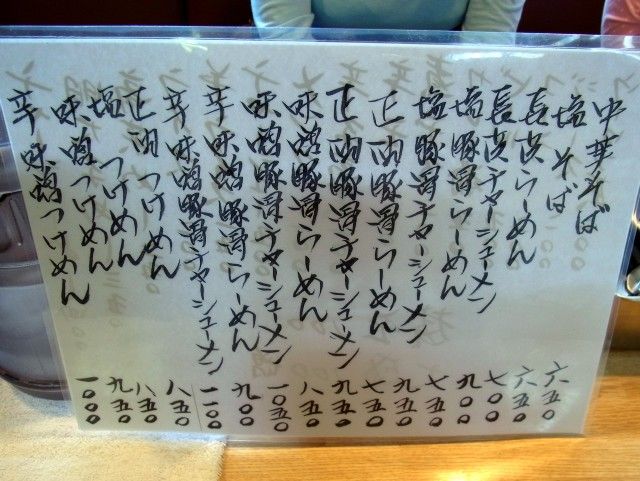 中華そば 六五〇
塩そば 六五〇
長英らーめん 七〇〇
長英チャーシューメン 九〇〇
塩豚骨らーめん 七五〇
塩豚骨チャーシューメン 九五〇
正油豚骨らーめん 七五〇
正油豚骨チャーシューメン 九五〇
味噌豚骨らーめん 八五〇
味噌豚骨チャーシューメン 一〇五〇
辛味噌豚骨らーめん 九〇〇
辛味噌豚骨チャーシューメン 一一〇〇
正油つけめん 八五〇
塩つけめん 八五〇
味噌つけめん 九五〇
辛味噌つけめん 一〇〇〇